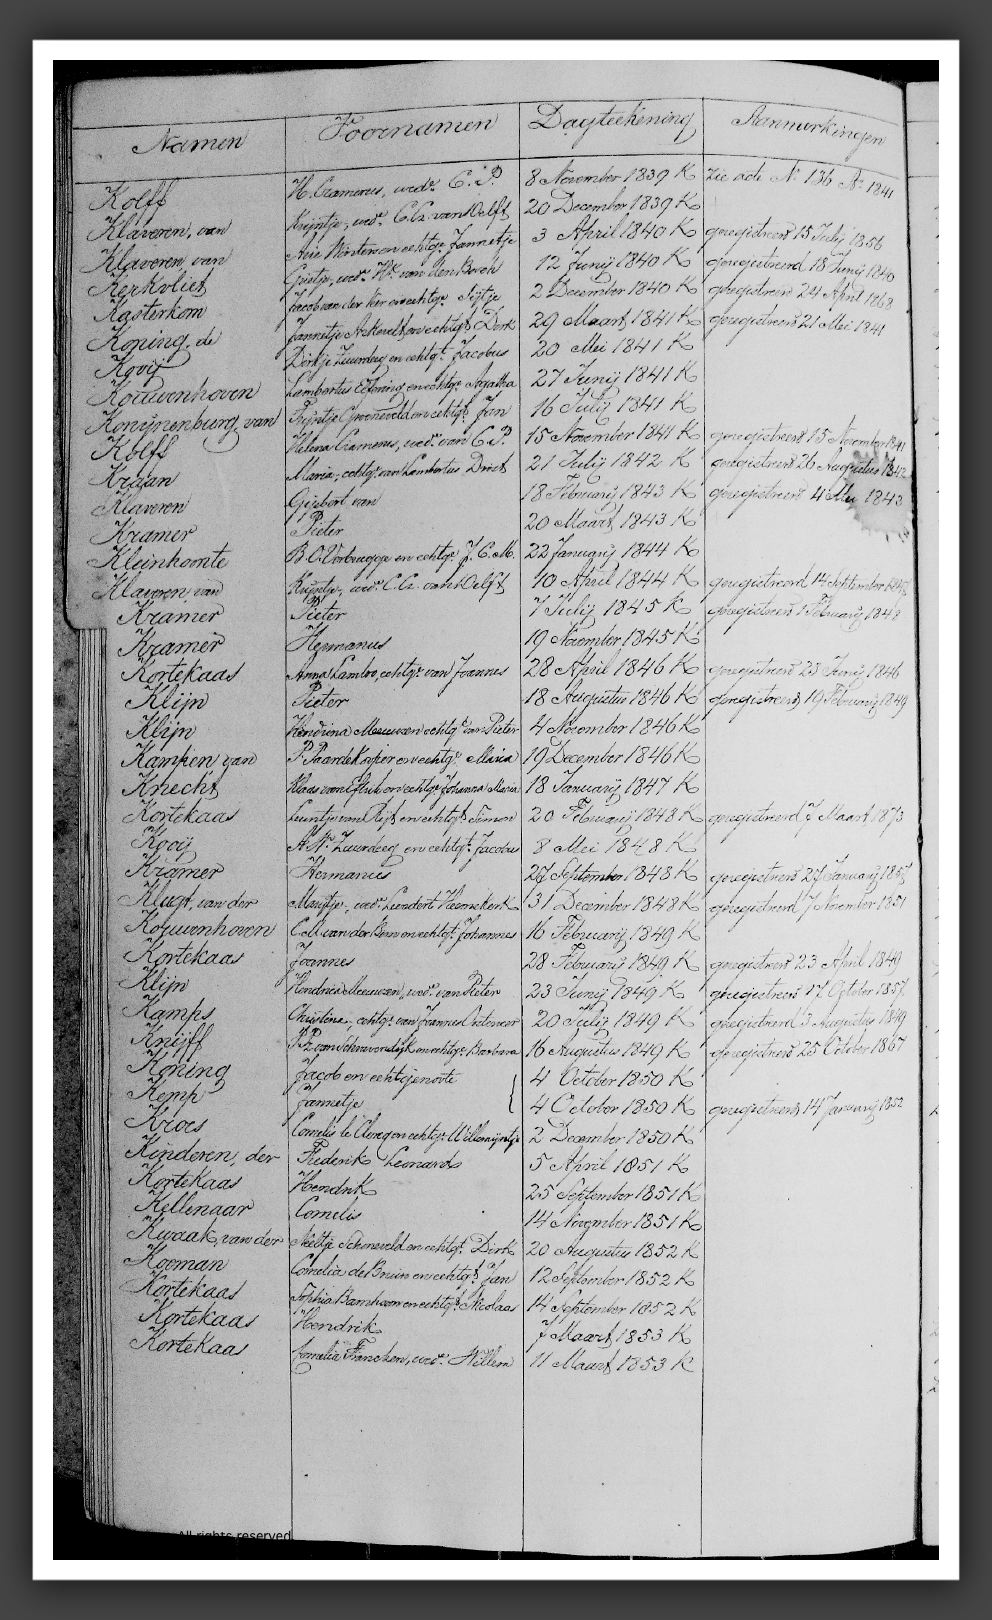 Namen Voornamen Dagteekening Aanmerkingen
Kolff H. Cramerus, wede. C. P. 8 November 1839 K zie acte No. 136 Ao. 1841
Klaveren, van Krijntje, wede. C. Cz. van Delft 20 December 1839 K
Klaveren, van Arie Winter en echtge. Jannetje 3 April 1840 K geregistreerd 15 Julij 1856
Kerkvliet Grietje, wede. van den Bosch 12 Junij 1840 K geregistreerd 18 Junij 1840
Kasterkom Jacob van der en echtge. Sijtje 2 December 1840 K geregistreerd 24 April 1868
Koning, de Jannetje en echtgt. Dirk 29 Maart 1841 K geregistreerd 21 Mei 1841
Kooij Dirkje Zuurdeeg en echtgt. Jacobus 20 Mei 1841 K
Kouwenhoven Lambertus Elfering en echtge. Agatha 27 Junij 1841 K
Konijnenburg, van Trijntje Groeneveld en echtgt. Jan 16 Julij 1841 K
Kolff Helena Cramerus, wede. van C. P. 15 November 1841 K geregistreerd 15 November 1841
Kraan Maria, echtge. van Lambertus Driet 21 Julij 1842 K geregistreerd 26 Augustus 1842
Klaveren Gijsbert van 18 Februarij 1843 K geregistreerd 4 Mei 1843
Kramer Pieter 20 Maart 1843 K
Kleinhonte B. C. Verbrugge en echtge. J. C. M. 22 Januarij 1844 K
Klaveren, van Krijntje, wede. C. Cz. van Delft 10 April 1844 K geregistreerd 14 September
Kramer Pieter 7 Julij 1845 K geregistreerd 1 Februarij 1848
Kramer Hermanus 19 November 1845 K
Kortekaas Anna Lambo, echtge. van Joannes 28 April 1846 K geregistreerd 23 Junij 1846
Klijn Pieter 18 Augustus 1846 K geregistreerd 19 Februarij 1849
Klijn Hendrina Meeuwsen echtge. van Pieter 4 November 1846 K
Kampen van P. Paardekooper en echtge. Maria 19 December 1846 K
Knecht Klaas van en echtge. Johanna Maria 18 Januarij 1847 K
Kortekaas Leuntje van Rijt en echtgt. Simon 20 Februarij 1848 K geregistreerd 7 Maart 1873
Kooij A. Zuurdeeg en echtgt. Jacobus 8 Mei 1848 K
Kramer Hermanus 27 September 1848 K geregistreerd 27 Januarij 1857
Klugt, van der Marijtje, wede. Leendert Heemskerk 31 December 1848 K geregistreerd 7 November 1851
Kouwenhoven C. M. van der en echtgt. Johannes 16 Februarij 1849 K
Kortekaas Joannes 28 Februarij 1849 K geregistreerd 23 April 1849
Klijn Hendrica Meeuwsen, wede. van Pieter 23 Junij 1849 K geregistreerd 17 October 1857
Kamps Christina, echtge. van Joannes Oosterveer 20 Julij 1849 K geregistreerd 3 Augustus 1849
Knijff P. Z. van Schravendijk en echtge. Barbara 16 Augustus 1849 K geregistreerd 25 October 1867
Koning Jacob en echtgenoote { 4 October 1850 K
Kemp Jannetje 4 October 1850 K geregistreerd 14 Januarij 1852
Kroes Cornelis le Clercq en echtge. Willemijntje 2 December 1850 K
Kinderen, der Frederik Leonard 5 April 1851 K
Kortekaas Hendrik 25 September 1851 K
Kellenaar Cornelis 14 November 1851 K
Kwaak, van der Neeltje Schoneveld en echtgt. Dirk 20 Augustus 1852 K
Kooman Cornelia de Bruin en echtgt. Jan 12 September 1852 K
Kortekaas Sophia Barnhoorn en echtgt. Nicolaas 14 September 1852 K
Kortekaas Hendrik 7 Maart 1853 K
Kortekaas Cornelia Francken, wede. Willem 11 Maart 1853 K
All rights reserved